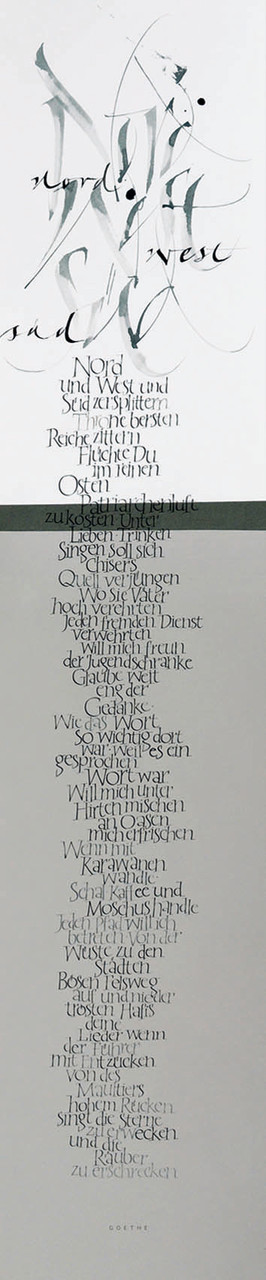 nord
west
süd
Nord
und West und
Süd zersplittern
Throne bersten
Reiche zittern
Flüchte Du
im reinen
Osten
Patriarchenluft
zu kosten Unter
Lieben Trinken
Singen soll sich
Chisers
Quell verjüngen
Wo sie Väter
hoch verehrten
Jeden fremden Dienst
verwehrten
will mich freun
der Jugendschranke
Glaube weit
eng der
Gedanke
Wie das Wort
so wichtig dort
war · weil es ein
gesprochen
Wort war
Will mich unter
Hirten mischen
an Oasen
mich erfrischen
Wenn mit
Karawanen
wandle
Schal Kaffee und
Moschus handle
Jeden Pfad will ich
betreten Von der
Wüste zu den
Städten
Bösen Felsweg
auf und nieder
trösten Hafis
deine
Lieder wenn
der Führer
mit Entzücken
von des
Maultiers
hohem Rücken
singt die Sterne
zu erwecken
und die
Räuber
zu erschrecken
GOETHE